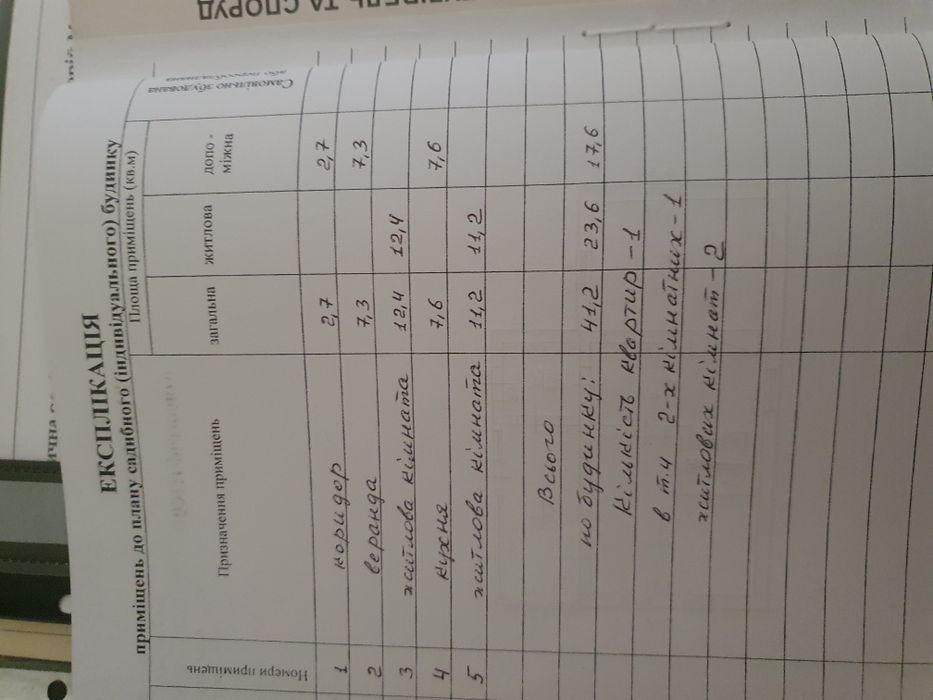 ТА СПОРУД
ЕКСПЛІКАЦІЯ
приміщень до плану садибного (індивідуального) будинку
Номери приміщень
Призначення приміщень
Площа приміщень (кв.м)
загальна
житлова
допо-
міжна
Самовільно збудована
або переобладнана
1 коридор 2,7 2,7 —
2 веранда 7,3 7,3 —
3 житлова кімната 12,4 12,4 —
4 кухня 7,6 7,6 —
5 житлова кімната 11,2 11,2 —
Всього
по будинку: 41,2 23,6 17,6 —
Кількість квартир - 1
в т.ч 2-х кімнатних - 1
житлових кімнат - 2